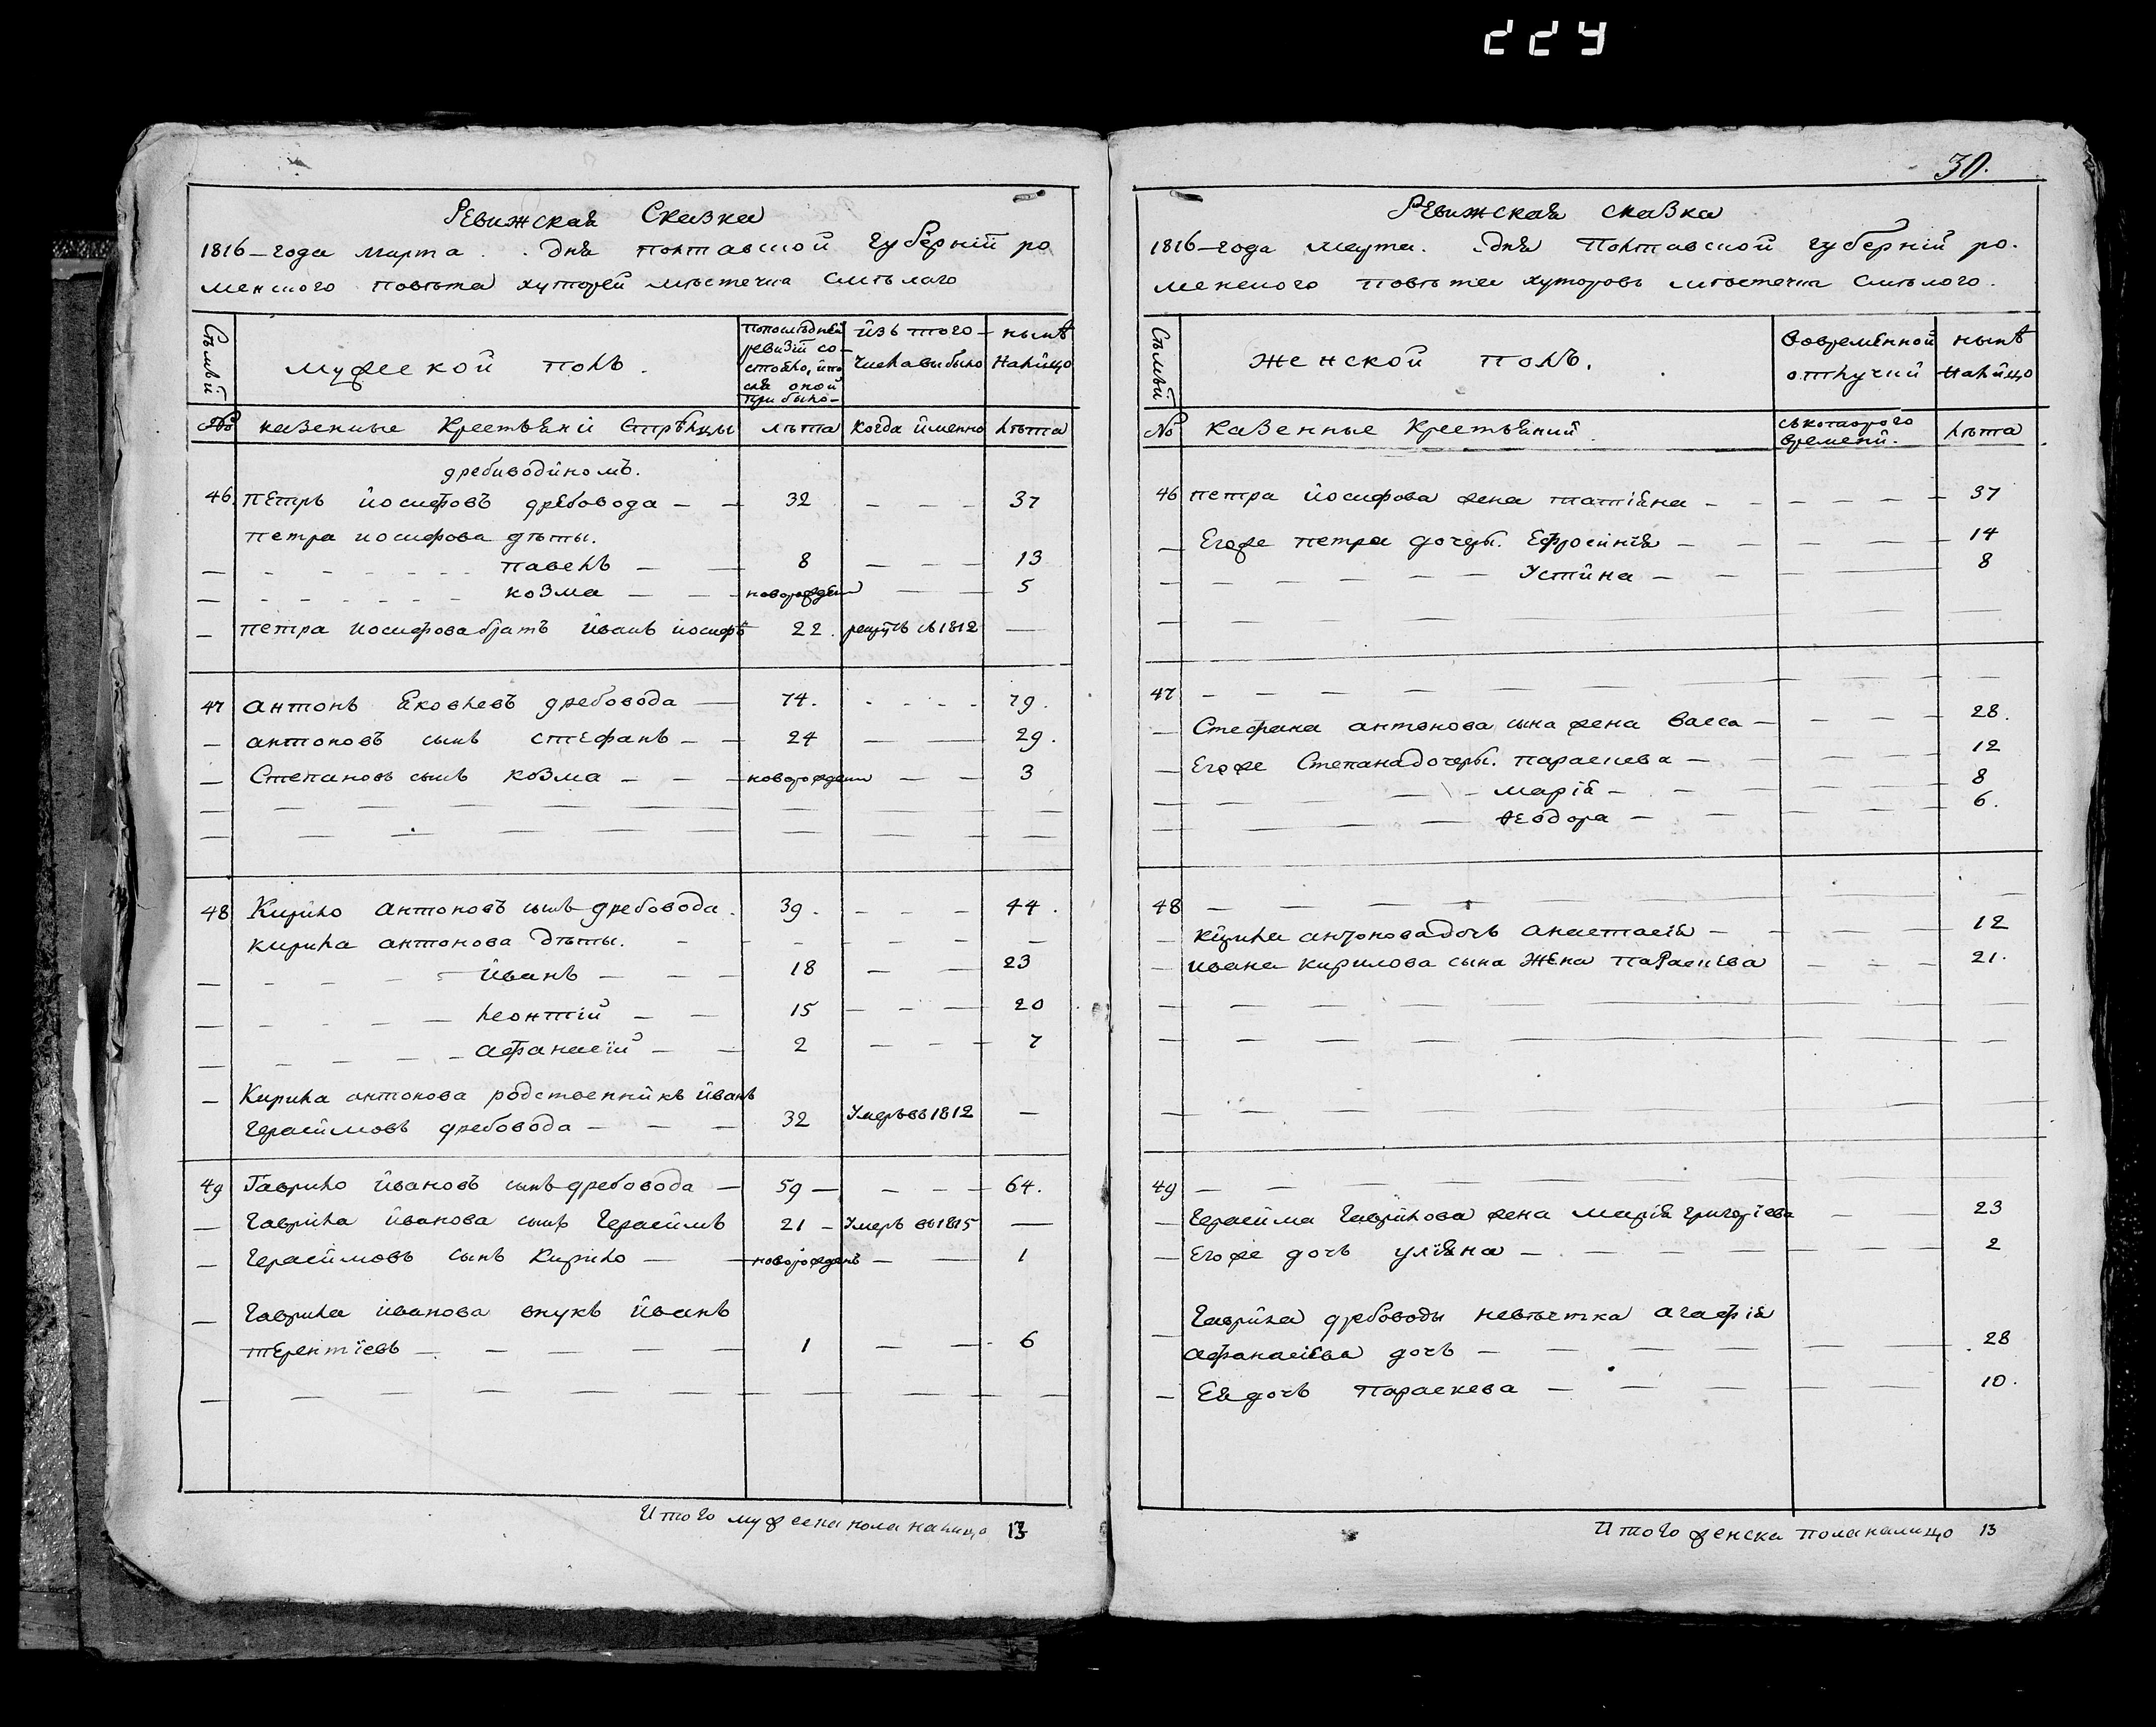 224
Ревижская Сказка
1816–года марта . . дня полтавской губерній ро
менского повѣта хуторей мѣстечка Смѣлаго
Сѣмьй
мужеской полъ.
попослѣдней
ревизій со-
стояло, ипо
сля оной
при было-
изъ того
числавыбыло
нынѣ
налицо
№
казенные Крестьяни Стрѣльцы
лѣта
когда именно
лѣта
дребиводиномъ.
46. петръ иосифовъ дребовода — — 32 — — — 37
петра иосифова дѣты.
— павелъ — — 8 — — — 13
— козма — — новорожден — — 5
— петра иосифова братъ иванъ иосифъ 22. въ 1812 —
47 антонъ яковлевъ дребовода — 74. - - - - 79.
— антоновъ сынъ стефанъ — — 24 — — 29.
— Степановъ сынъ козма — — новорожден — — 3
48 Кирило антоновъ сынъ дребовода. 39. - - - 44.
кирила антонова дѣты.
— иванъ — — — 18 — — 23
— леонтій — — 15 — — — 20
— афанасій — — 2 — — — 7
— Кирила антонова родственникъ иванъ
герасимовъ дребовода — — — 32 Умеръ въ 1812 —
49 Гаврило ивановъ сынъ дребовода — 59 — — — — 64.
— гаврила иванова сынъ герасимъ 21 — Умеръ въ 1815 —
— герасимовъ сынъ Кирило — новорожденъ — — 1
— гаврила иванова внукъ иванъ
терентіевъ — — — — 1 — — 6
Итого мужеска пола налицо 13
30.
Ревижская сказка
1816–года марта. . дня Полтавской губерній ро.
менского повѣта хуторовъ мѣстечка Смѣлого.
Сѣмьй
женской полъ.
вовременной
отлучки
нынѣ
налицо
№
казенные Крестьяний
съкоторого
времени.
лѣта
46 петра иосифова жена татіяна — — — — — 37
— Егоже петра дочеры. Ефросинія — — — — 14
— Устина — — — 8
47 — — — — — — — —
— Стефана антонова сына жена васса — — — — 28.
— Егоже Степана дочеры. параскева — — — — 12
— марія — — — 8
— ѳеодора — — — 6.
48 — — — — — — — —
— кирила антонова дочъ анастасія — — — — 12
— ивана кирилова сына жена параскева — — — 21.
49 — — — — — — — —
— герасима гаврилова жена марія григоріева — — 23
— Егоже дочъ уліяна — — — — — — 2
— гаврила дребоводы невѣстка агафія
афанасіева дочъ — — — — — — 28
— Ея дочъ параскева — — — — — 10.
Итого женска пола налицо 13